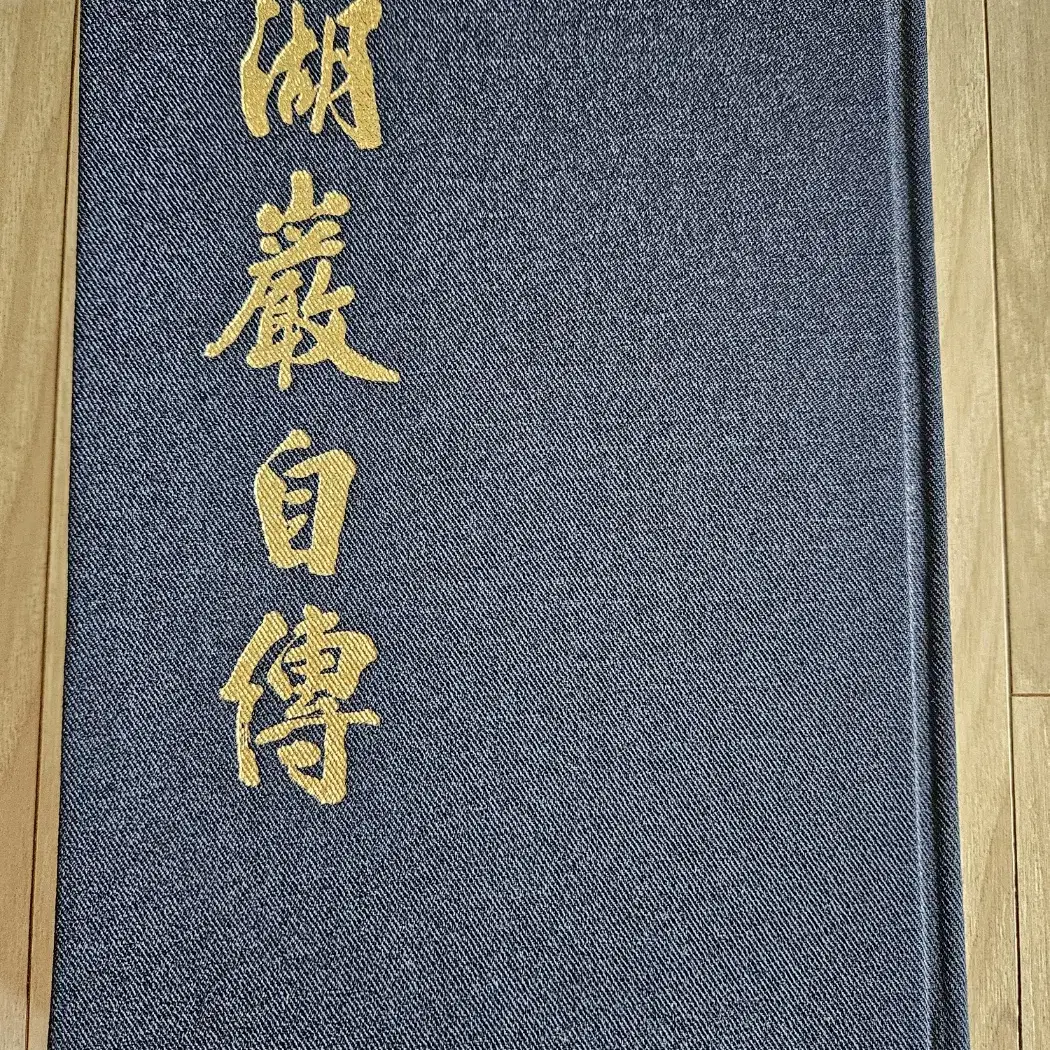 湖巖自傳